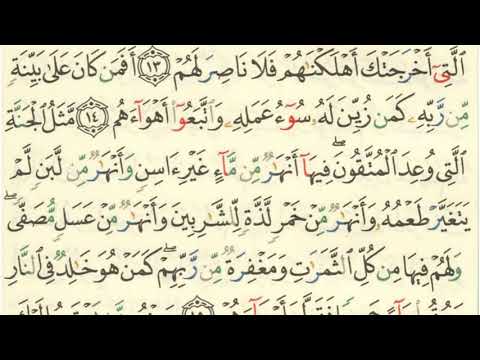 ٱلَّتِىٓ أَخْرَجَتْكَ أَهْلَكْنَٰهُمْ فَلَا نَاصِرَ لَهُمْ ۝١٣ أَفَمَن كَانَ عَلَىٰ بَيِّنَةٍ
مِّن رَّبِّهِۦ كَمَن زُيِّنَ لَهُۥ سُوٓءُ عَمَلِهِۦ وَٱتَّبَعُوٓا۟ أَهْوَآءَهُم ۝١٤ مَّثَلُ ٱلْجَنَّةِ
ٱلَّتِى وُعِدَ ٱلْمُتَّقُونَ ۖ فِيهَآ أَنْهَٰرٌ مِّن مَّآءٍ غَيْرِ ءَاسِنٍ وَأَنْهَٰرٌ مِّن لَّبَنٍ لَّمْ
يَتَغَيَّرْ طَعْمُهُۥ وَأَنْهَٰرٌ مِّنْ خَمْرٍ لَّذَّةٍ لِّلشَّٰرِبِينَ وَأَنْهَٰرٌ مِّنْ عَسَلٍ مُّصَفًّى ۖ
وَلَهُمْ فِيهَا مِن كُلِّ ٱلثَّمَرَٰتِ وَمَغْفِرَةٌ مِّن رَّبِّهِمْ ۖ كَمَنْ هُوَ خَٰلِدٌ فِى ٱلنَّارِ